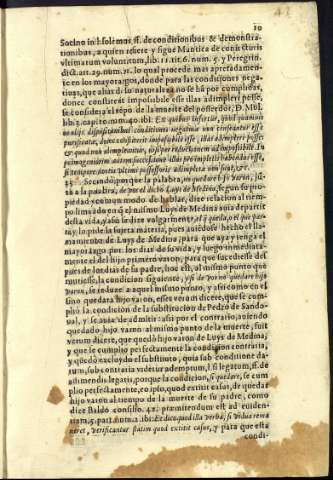 10
Socino in l. solemus ff. de conditionibus & demonstra-
tionibus, a quien refiere y sigue Mantica de coniecturis
vltimarum voluntatum, lib. 11. tit. 6. num. 5. y Peregrin.
dict. art. 29. num. 21. lo qual procede mas apretadamen-
te en los mayorazgos, donde para las condiciones nega-
tiuas, que alias de su naturaleza no se hã por cumplidas,
donec constiterit impossibile esse illas adimpleri posse,
se considera el tẽpo de la muerte del possessor, D. Mol.
lib. 1. capit. num. 40. ibi. Ex quibus infertur, quod quamuis
in alijs dispositionibus conditiones negatiuæ non censeantur esse
purificatæ, donec constiterit impossibile esse, illas adimpleri posse
& quod non adimpleantur,
primogeniorum autem successione illas pro impletis habendas esse,
si tempore mortis vltimi possessoris adimpletæ non sint, &c.
25 Secundò, porque la palabra, ni quedare hijo varon, jũ-
ta a la palabra, de por el dicho Luys de Medina, segun su pro-
piedad y comun modo de hablar, dize relacion al tiem-
po limitado por q̃ el mismo Luys de Medina auia de partir
desta vida, y assi se dize vulgarmente,
tò, lo pide la sujeta materia, pues auiendose hecho el lla-
mamiento de Luys de Medina para que aya y tenga el
mayorazgo por los dias de su vida, y luego inmediata-
mente el del hijo primero varon, para que sucediesse des-
pues de los dias de su padre, hoc est, al mismo punto que
muriesse, la condicion siguiente, y si de varon quedare hijo
varon, se induze a aquel mismo punto, y assi como en el
sino quedara hijo varon, esset verum dicere, que se cum-
plio la condicion de la substitucion de Pedro de Sando-
ual, y se auia de admitir: assi por el contrario, auiendo
quedado hijo varon al mismo punto de la muerte, fuit
verum dicere, que quedò hijo varon de Luys de Medina,
y que se cumplio perfectamente la condicion contraria,
y quedò excluydo el substituto, quia sub conditione da-
tum, sub contraria videtur ademptum, l. si legatum, ff. de
adimendis legatis, porque la condicion, si quedare, se cum
plio perfectamente, eo ipso, quod extitit casus, de quedar
hijo varon al tiempo de la muerte de su padre, como
dize Baldo consilio. 42. præmittendum est ad euiden-
tiam, 5. part. num. 2. ibi: Et dico quod illa verba, si vidua rema
neret, verificantur statim quod extitit casus, y para que esta
condi-